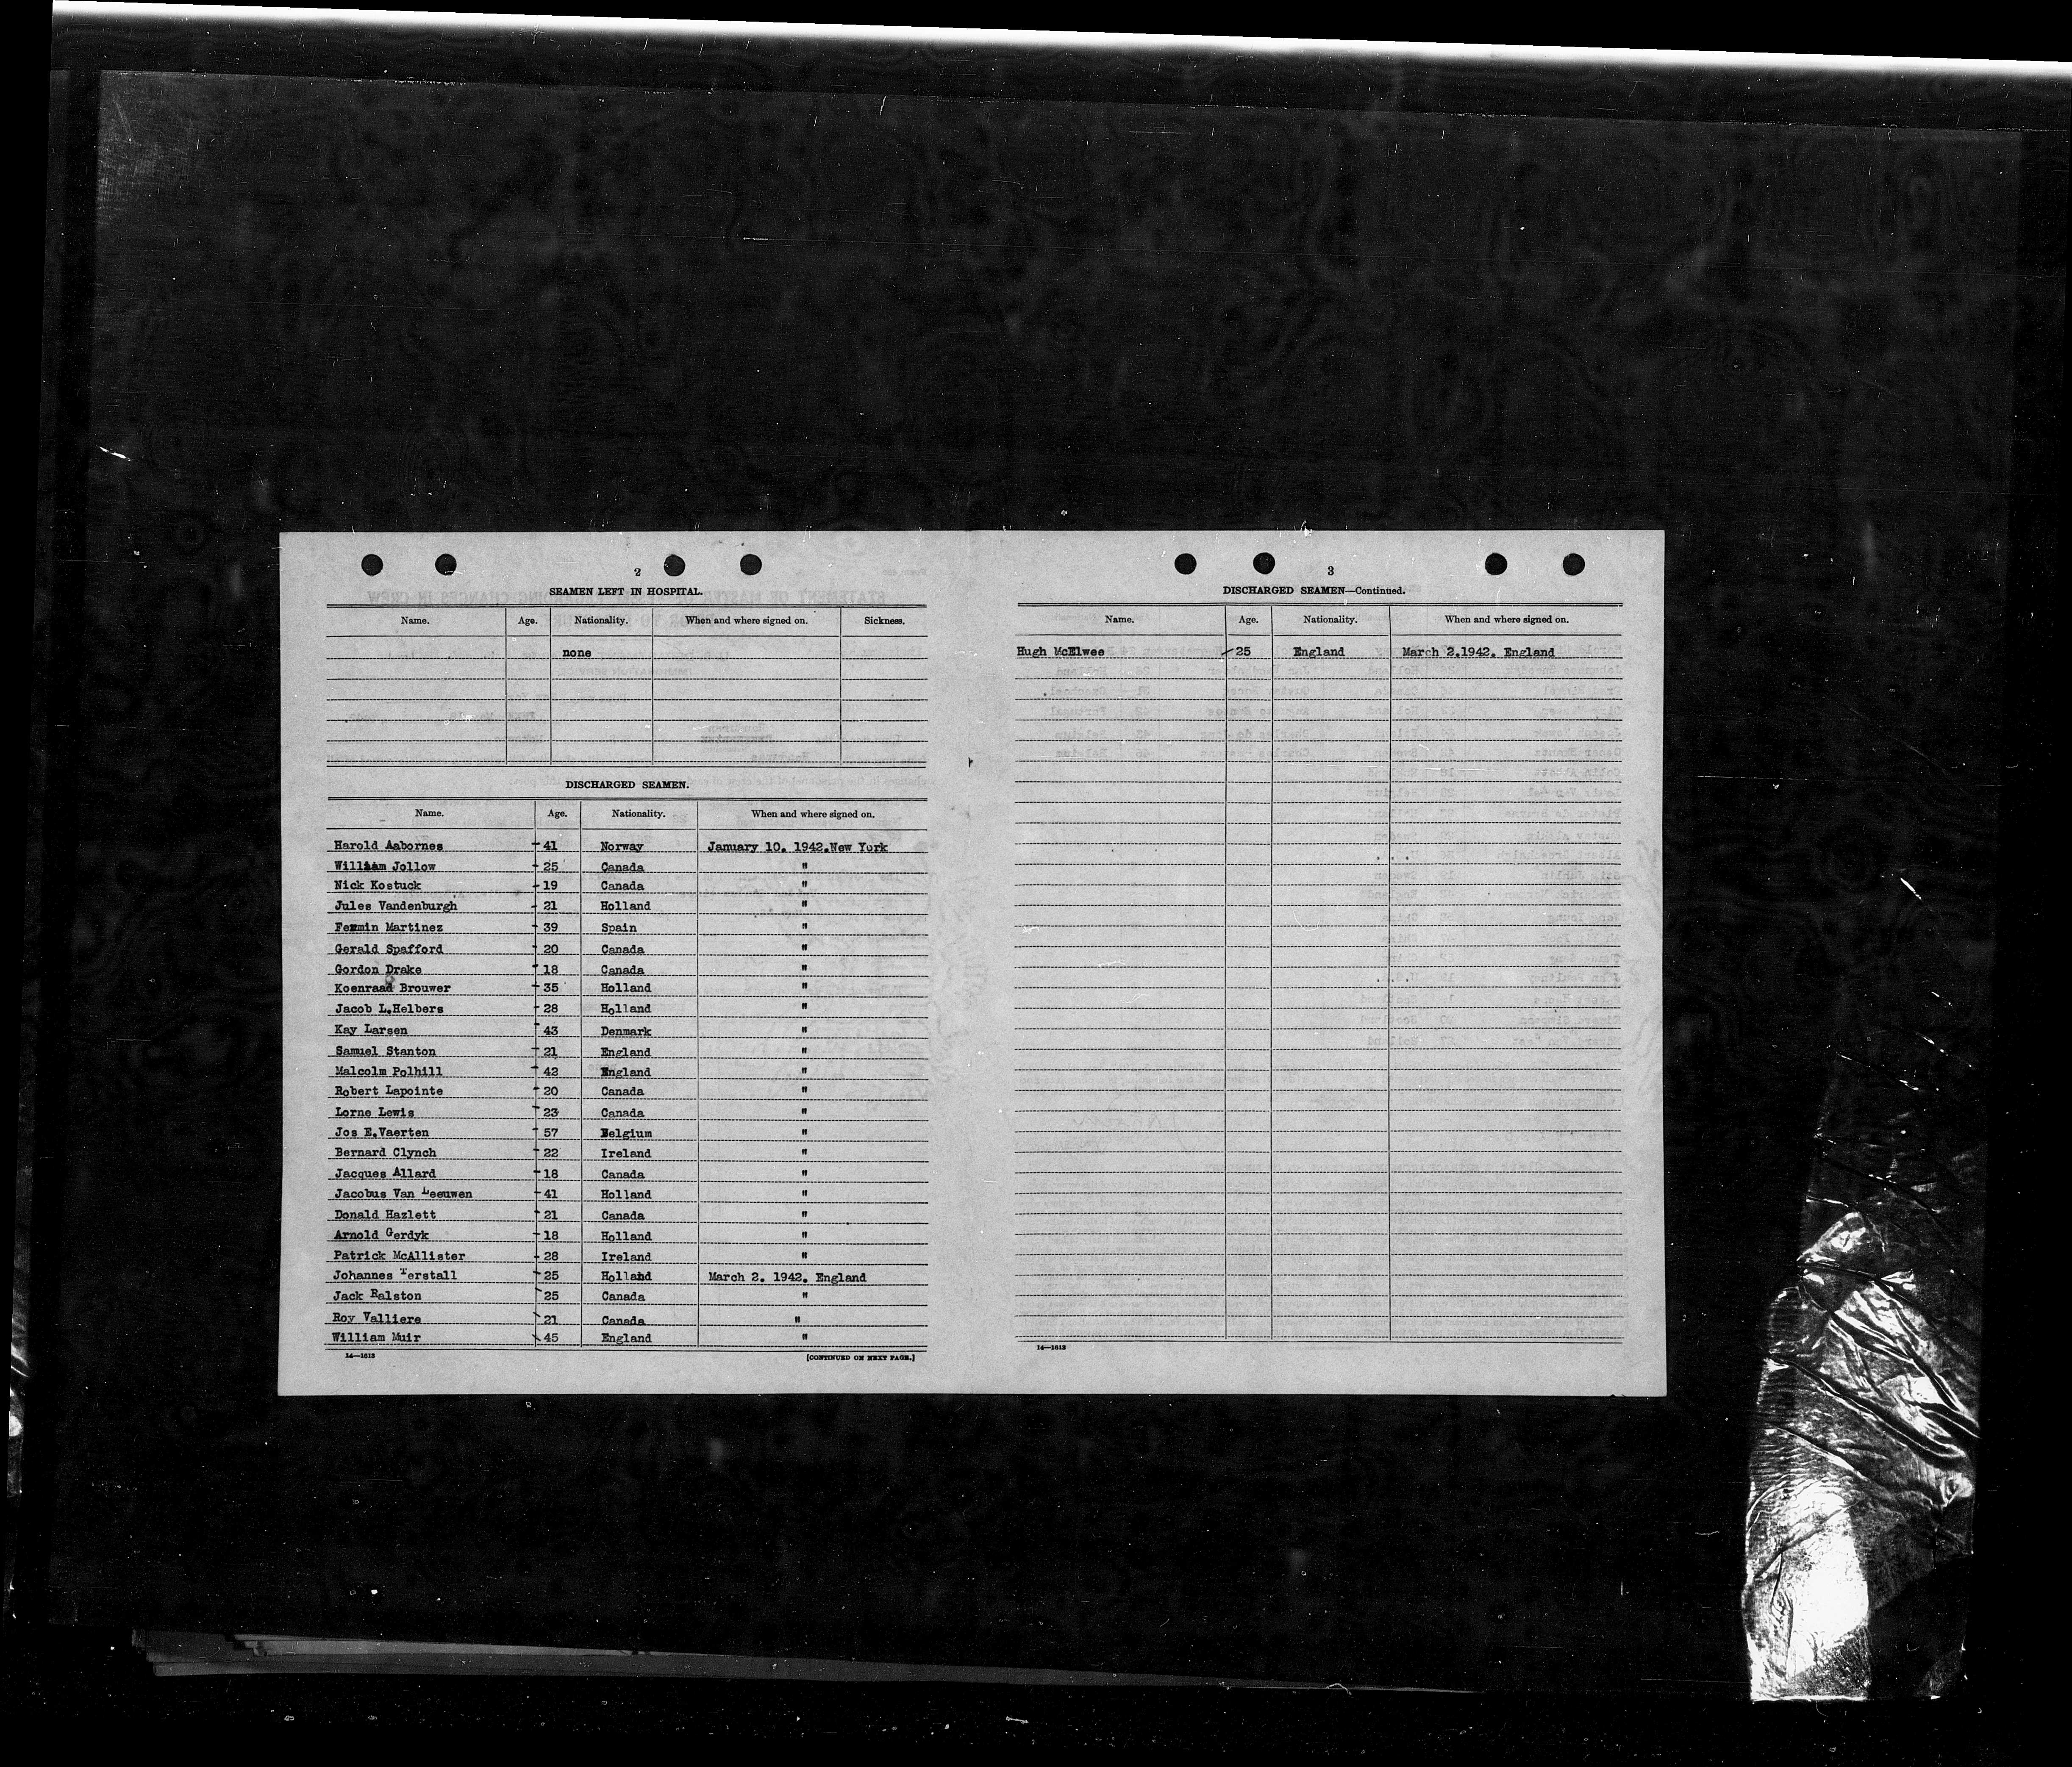 2
SEAMEN LEFT IN HOSPITAL.
Name. Age. Nationality. When and where signed on. Sickness.
none
DISCHARGED SEAMEN.
Name. Age. Nationality. When and where signed on.
Harold Aabornes 41 Norway January 10. 1942.New York
William Jollow 25 Canada "
Nick Kostuck 19 Canada "
Jules Vandenburgh 21 Holland "
Fermin Martinez 39 Spain "
Gerald Spafford 20 Canada "
Gordon Drake 18 Canada "
Koenraad Brouwer 35 Holland "
Jacob L.Helbers 28 Holland "
Kay Larsen 43 Denmark "
Samuel Stanton 21 England "
Malcolm Polhill 42 England "
Robert Lapointe 20 Canada "
Lorne Lewis 23 Canada "
Jos E.Vaerten 57 Belgium "
Bernard Clynch 22 Ireland "
Jacques Allard 18 Canada "
Jacobus Van Leeuwen 41 Holland "
Donald Hazlett 21 Canada "
Arnold Gerdyk 18 Holland "
Patrick McAllister 28 Ireland "
Johannes Terstall 25 Holland March 2. 1942. England
Jack Ralston 25 Canada "
Roy Valliere 21 Canada "
William Muir 45 England "
14—1613
[CONTINUED ON NEXT PAGE.]
3
DISCHARGED SEAMEN—Continued.
Name. Age. Nationality. When and where signed on.
Hugh McElwee 25 England March 2.1942. England
14—1613